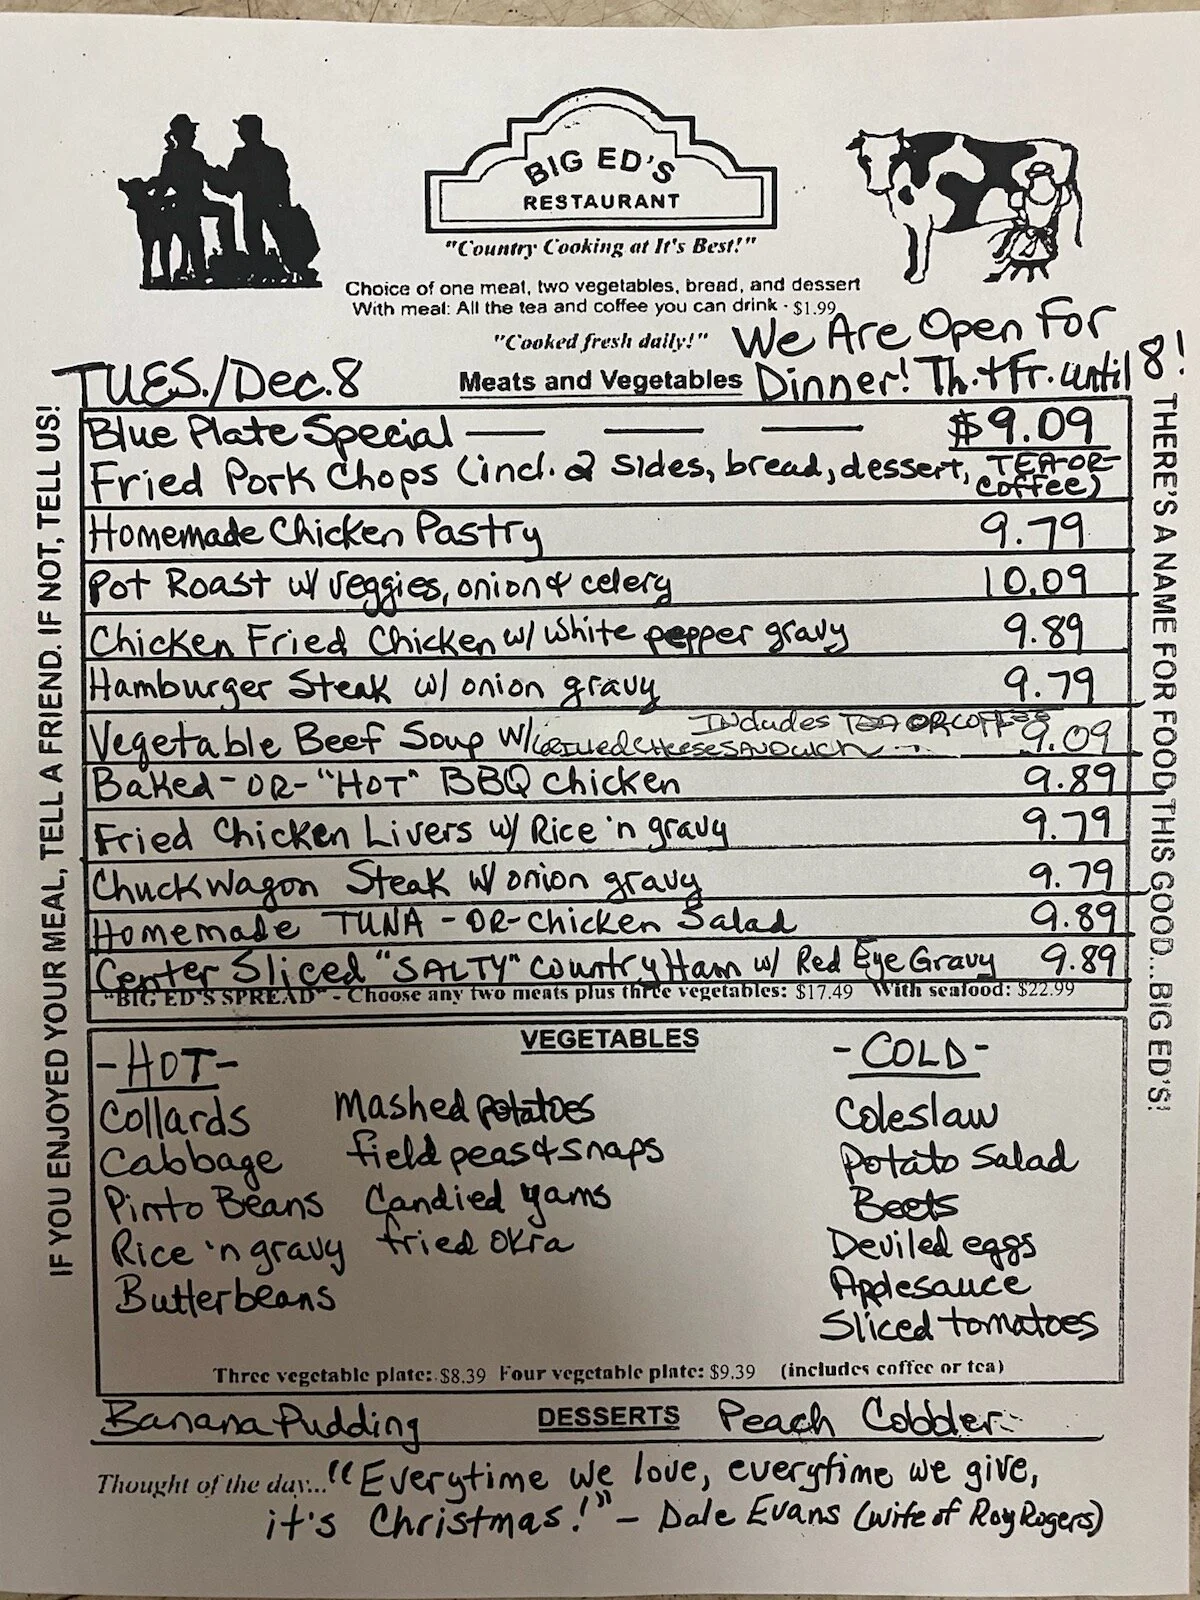 BIG ED'S
RESTAURANT
"Country Cooking at It's Best!"
Choice of one meat, two vegetables, bread, and dessert
With meal: All the tea and coffee you can drink - $1.99
"Cooked fresh daily!"
We Are Open For
Dinner! Th.+Fr. until 8!
TUES./Dec.8
Meats and Vegetables
Blue Plate Special — — — $9.09
Fried Pork Chops (incl. 2 sides, bread, dessert, TEA-OR-
coffee)
Homemade Chicken Pastry 9.79
Pot Roast w/ veggies, onion & celery 10.09
Chicken Fried Chicken w/ white pepper gravy 9.89
Hamburger Steak w/ onion gravy 9.79
Includes TEA OR COFFEE
Vegetable Beef Soup w/ GRILLED CHEESE SANDWICH 9.09
Baked -OR- "HOT" BBQ Chicken 9.89
Fried Chicken Livers w/ Rice 'n gravy 9.79
Chuckwagon Steak w/ onion gravy 9.79
Homemade TUNA -OR- Chicken Salad 9.89
Center Sliced "SALTY" Country Ham w/ Red Eye Gravy 9.89
"BIG ED'S SPREAD" - Choose any two meats plus three vegetables: $17.49 With seafood: $22.99
VEGETABLES
-HOT-
Collards
Cabbage
Pinto Beans
Rice 'n gravy
Butterbeans
Mashed potatoes
field peas & snaps
Candied yams
fried okra
-COLD-
Coleslaw
Potato Salad
Beets
Deviled eggs
Applesauce
Sliced tomatoes
Three vegetable plate: $8.39 Four vegetable plate: $9.39 (includes coffee or tea)
DESSERTS
Banana Pudding
Peach Cobbler
Thought of the day... "Everytime we love, everytime we give,
it's Christmas!" - Dale Evans (wife of Roy Rogers)
IF YOU ENJOYED YOUR MEAL, TELL A FRIEND. IF NOT, TELL US!
THERE'S A NAME FOR FOOD THIS GOOD...BIG ED'S!